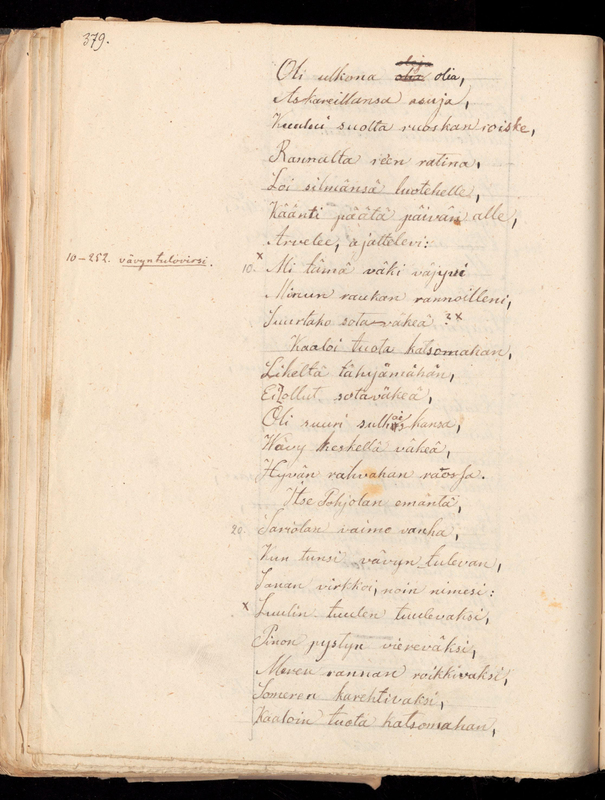 379.
Oli ulkona olia,
Askareillansa asuja,
Kuului suolta ruoskan roiske,
Rannalta reen ratina,
Loi silmänsä luotehelle,
Käänti päätä päivän alle,
Arvelee, ajattelevi:
10-252. vävyntulovirsi.
10. x Mi tämä väki väjyvi
Minun raukan rannoilleni,
Suurtako sota-väkeä? x
Kaaloi tuota katsomahan,
Likeltä tähyjämähän,
Ei ollut sotaväkeä,
Oli suuri sulhais kansa,
Wävy keskellä väkeä,
Hyvän rahvahan raossa.
Itse Pohjolan emäntä,
20. Sariolan vaimo vanha,
Kun tunsi vävyn tulevan,
Sanan virkkoi, noin nimesi:
x Luulin tuulen tuulevaksi,
Pinon pystyn vierevaksi,
Meren rannan roikkivaksi,
Someren karehtivaksi,
Kaaloin tuota katsomahan,